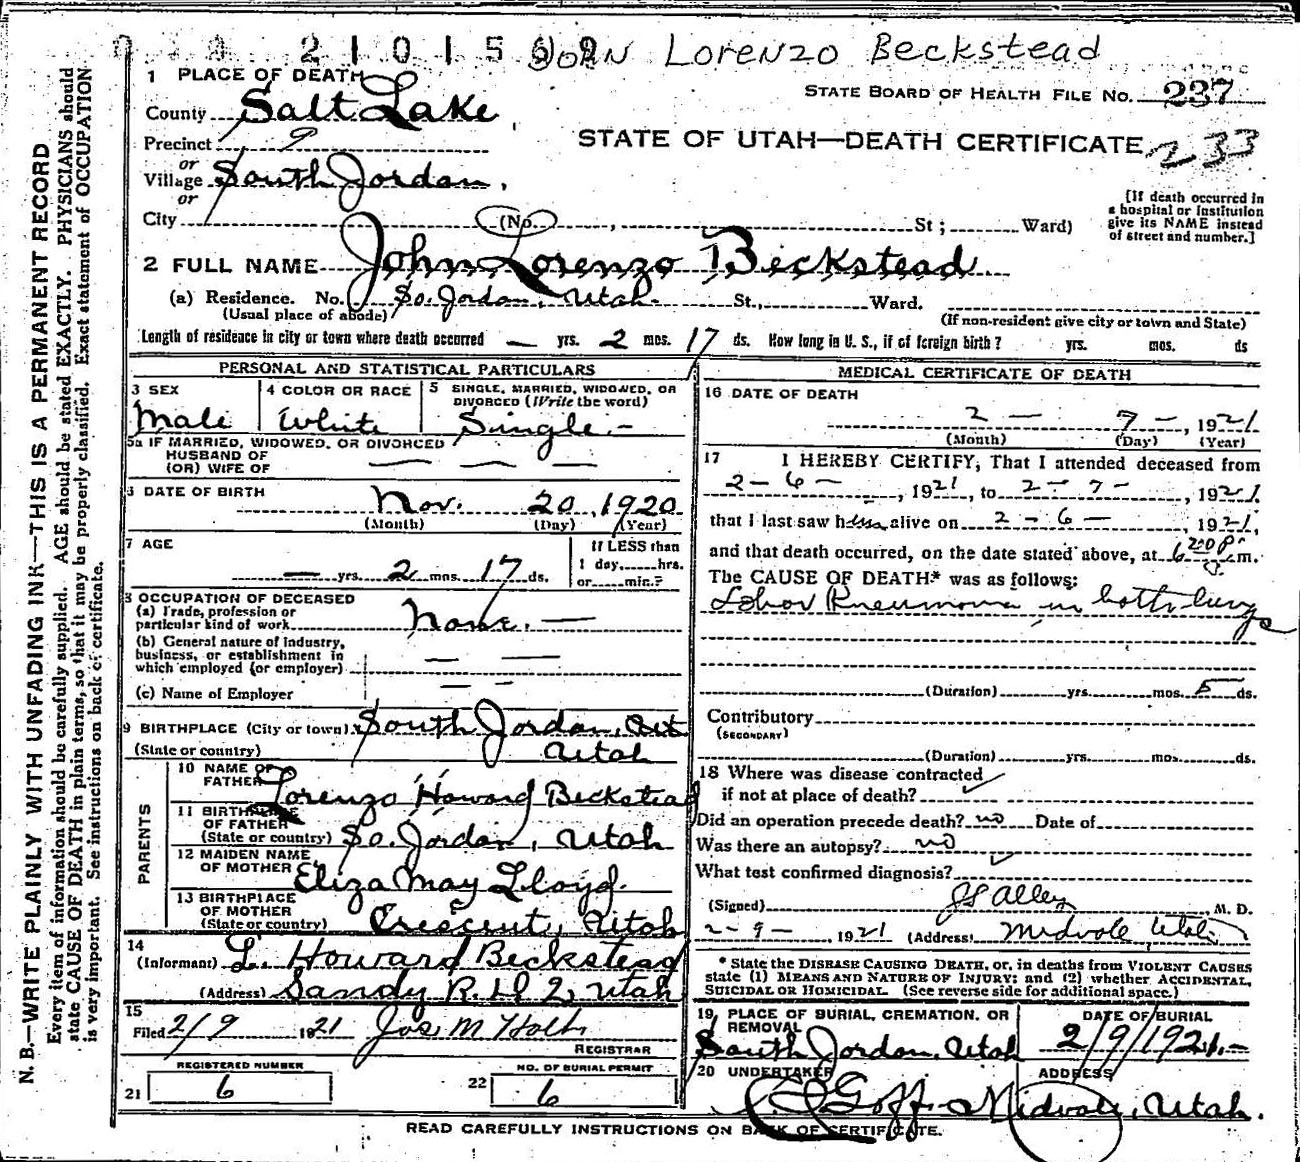 2 1 0 1 5
John Lorenzo Beckstead
1 PLACE OF DEATH
STATE BOARD OF HEALTH FILE NO. 237
County Salt Lake
STATE OF UTAH—DEATH CERTIFICATE 233
Precinct 9
or
Village South Jordan,
or
City (No. , St ; Ward)
[If death occurred in
a hospital or institution
give its NAME instead
of street and number.]
2 FULL NAME John Lorenzo Beckstead
(a) Residence. No. So. Jordan, Utah. St., Ward.
(Usual place of abode) (If non-resident give city or town and State)
Length of residence in city or town where death occurred — yrs. 2 mos. 17 ds. How long in U. S., if of foreign birth? yrs. mos. ds
PERSONAL AND STATISTICAL PARTICULARS
3 SEX
Male
4 COLOR OR RACE
White
5 SINGLE, MARRIED, WIDOWED, OR
DIVORCED (Write the word)
Single.-
5a IF MARRIED, WIDOWED, OR DIVORCED
HUSBAND OF
(OR) WIFE OF — — —
6 DATE OF BIRTH
Nov. 20, 1920
(Month) (Day) (Year)
7 AGE
— yrs. 2 mos. 17 ds.
If LESS than
1 day, hrs.
or min.?
8 OCCUPATION OF DECEASED
(a) Trade, profession or
particular kind of work None. —
(b) General nature of industry,
business, or establishment in
which employed (or employer) — —
(c) Name of Employer — —
9 BIRTHPLACE (City or town) South Jordan,
(State or country) Utah
PARENTS
10 NAME OF
FATHER Lorenzo Howard Beckstead
11 BIRTHPLACE
OF FATHER
(State or country) So. Jordan, Utah
12 MAIDEN NAME
OF MOTHER Eliza May Lloyd.
13 BIRTHPLACE
OF MOTHER
(State or country) Crescent, Utah
14
(Informant) L. Howard Beckstead
(Address) Sandy R. D 2, Utah
15
Filed 2/9 1921 Jos M Holt
REGISTRAR
REGISTERED NUMBER
21 6
NO. OF BURIAL PERMIT
22 6
MEDICAL CERTIFICATE OF DEATH
16 DATE OF DEATH
2 — 7 —, 1921
(Month) (Day) (Year)
17 I HEREBY CERTIFY, That I attended deceased from
2 - 6 - , 1921, to 2 - 7 - , 1921.
that I last saw him alive on 2 - 6 - , 1921,
and that death occurred, on the date stated above, at 6 20 P m.
The CAUSE OF DEATH* was as follows:
Lobar Pneumonia in both lungs
(Duration) yrs. mos. 5 ds.
Contributory
(SECONDARY)
(Duration) yrs. mos. ds.
18 Where was disease contracted
if not at place of death?
Did an operation precede death? no Date of
Was there an autopsy? no
What test confirmed diagnosis?
(Signed) Alley M. D.
2 - 9 - , 1921 (Address) Midvale Utah
* State the DISEASE CAUSING DEATH, or, in deaths from VIOLENT CAUSES
state (1) MEANS AND NATURE OF INJURY; and (2) whether ACCIDENTAL,
SUICIDAL OR HOMICIDAL. (See reverse side for additional space.)
19 PLACE OF BURIAL, CREMATION, OR
REMOVAL
South Jordan, Utah
DATE OF BURIAL
2/9/1921.-
20 UNDERTAKER ADDRESS
Goff - Midvale, Utah.
READ CAREFULLY INSTRUCTIONS ON BACK OF CERTIFICATE.
N. B.—WRITE PLAINLY WITH UNFADING INK—THIS IS A PERMANENT RECORD
Every item of information should be carefully supplied. AGE should be stated EXACTLY. PHYSICIANS should
state CAUSE OF DEATH in plain terms, so that it may be properly classified. Exact statement of OCCUPATION
is very important. See instructions on back of certificate.